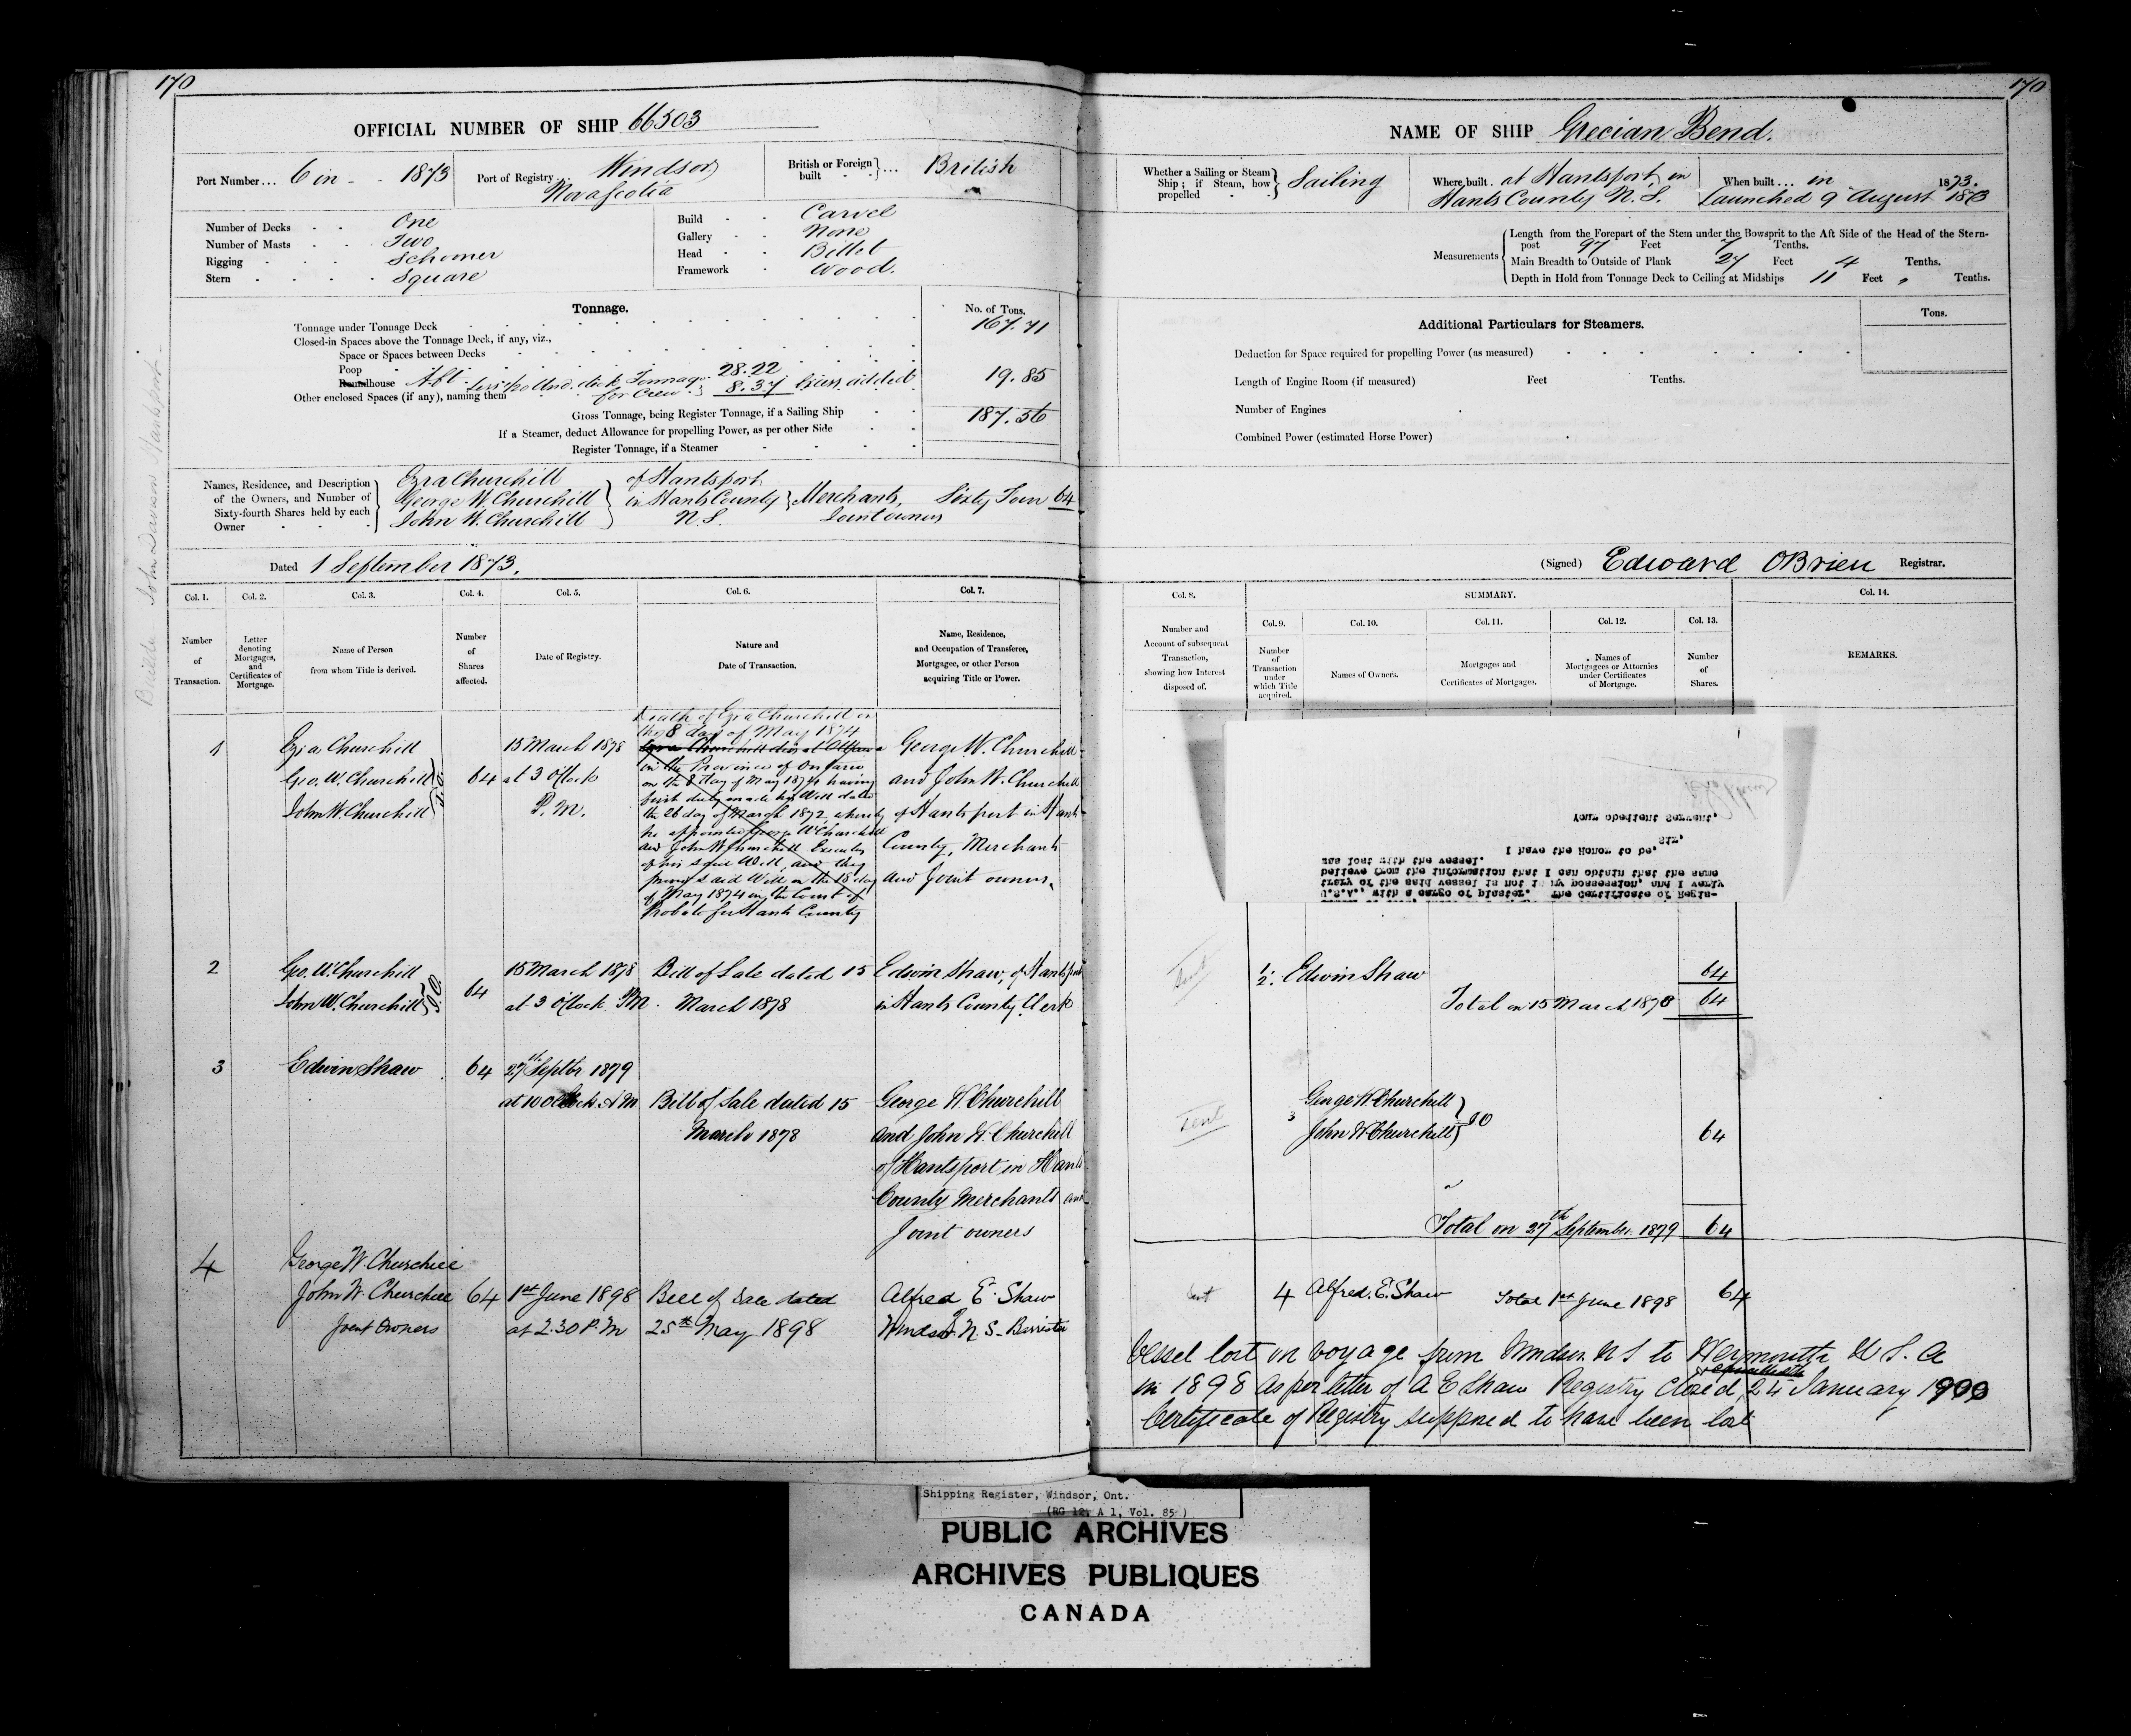 170
OFFICIAL NUMBER OF SHIP 66503
Port Number... 6 in - - 1873
Port of Registry... Windsor
Nova Scotia
British or Foreign built - - }... British
Number of Decks - - One
Number of Masts - - Two
Rigging - - Schooner
Stern - - - Square
Build - - Carvel
Gallery - - None
Head - - Billet
Framework - Wood.
Tonnage.
No. of Tons.
Tonnage under Tonnage Deck 167.71
Closed-in Spaces above the Tonnage Deck, if any, viz.,
Space or Spaces between Decks
Poop 28.22
Roundhouse Aft
Other enclosed Spaces (if any), naming them
for Crew 8.37 Excess added 19.85
Gross Tonnage, being Register Tonnage, if a Sailing Ship 187.56
If a Steamer, deduct Allowance for propelling Power, as per other Side
Register Tonnage, if a Steamer
Names, Residence, and Description
of the Owners, and Number of
Sixty-fourth Shares held by each
Owner
Ezra Churchill
George W. Churchill
John W. Churchill
of Hantsport
in Hants County
N.S.
Merchants,
Joint owners
Sixty Four 64
Dated 1 September 1873.
Builder John Davison Hantsport
Col. 1.
Col. 2.
Col. 3.
Col. 4.
Col. 5.
Col. 6.
Col. 7.
Number of Transaction.
Letter denoting Mortgages, and Certificates of Mortgage.
Name of Person from whom Title is derived.
Number of Shares affected.
Date of Registry.
Nature and Date of Transaction.
Name, Residence, and Occupation of Transferee, Mortgagee, or other Person acquiring Title or Power.
1
Ezra Churchill
Geo. W. Churchill
John W. Churchill
J.O.
64
15 March 1878
at 3 o'Clock
P.M.
Death of Ezra Churchill on
the 8 day of May 1874
Ezra Churchill died at Ottawa
in the Province of Ontario
on the 8 day of May 1874 having
first duly made his Will dated
the 26 day of March 1872, whereby
he appointed George W Churchill
and John W Churchill Executors
of his said Will, and they
proved said Will on the 18 day
of May 1874 in the Court of
Probate for Hants County
George W. Churchill
and John W. Churchill
of Hantsport in Hants
County, Merchants
and Joint owners,
2
Geo. W. Churchill
John W. Churchill
J.O.
64
15 March 1878
at 3 o'Clock PM.
Bill of Sale dated 15
March 1878
Edwin Shaw, of Hantsport
in Hants County Clerk
3
Edwin Shaw
64
27th Septbr 1879
at 10 O'Clock AM
Bill of Sale dated 15
March 1878
George W. Churchill
and John W. Churchill
of Hantsport in Hants
County Merchants and
Joint owners
4
George W. Churchill
John W. Churchill
Joint Owners
64
1st June 1898
at 2.30 P.M
Bill of Sale dated
25th May 1898
Alfred E. Shaw
of
Windsor N.S. Barrister
170
NAME OF SHIP Grecian Bend.
Whether a Sailing or Steam
Ship; if Steam, how
propelled - - } Sailing
Where built. at Hantsport in
Hants County N.S.
When built... in 1873.
Launched 9 August 1873
Measurements
Length from the Forepart of the Stem under the Bowsprit to the Aft Side of the Head of the Stern-
post 97 Feet 7 Tenths.
Main Breadth to Outside of Plank 27 Feet 4 Tenths.
Depth in Hold from Tonnage Deck to Ceiling at Midships 11 Feet „ Tenths.
Additional Particulars for Steamers.
Tons.
Deduction for Space required for propelling Power (as measured)
Length of Engine Room (if measured) Feet Tenths.
Number of Engines
Combined Power (estimated Horse Power)
(Signed) Edward OBrien Registrar.
Col. 8.
SUMMARY.
Col. 14.
Number and Account of subsequent Transaction, showing how Interest disposed of.
Col. 9.
Col. 10.
Col. 11.
Col. 12.
Col. 13.
Number of Transaction under which Title acquired.
Names of Owners.
Mortgages and Certificates of Mortgages.
Names of Mortgagees or Attornies under Certificates of Mortgage.
Number of Shares.
REMARKS.
U.S.A., with a cargo of plaster. The Certificate of Regis-
trery of the said vessel is not in my possession, and I verly
believe from the information that I can obtain that the same
was lost with the vessel.
I have the Honor to be,
Sir,
Your obedient Servant,
sent
1
2
Edwin Shaw 64
Total on 15 March 1878 64
sent
3
George W Churchill
John W Churchill
JO
64
Total on 27th September 1879 64
sent
4 Alfred. E. Shaw Total 1st June 1898 64
Vessel lost on voyage from Windsor N S to Weymouth U.S.A
in 1898 as per letter of A E Shaw Registry Closed 24 January 1900
Certificate of Registry supposed to have been lost
Shipping Register, Windsor, Ont.
(RG 12, A 1, Vol. 85)
PUBLIC ARCHIVES
ARCHIVES PUBLIQUES
CANADA